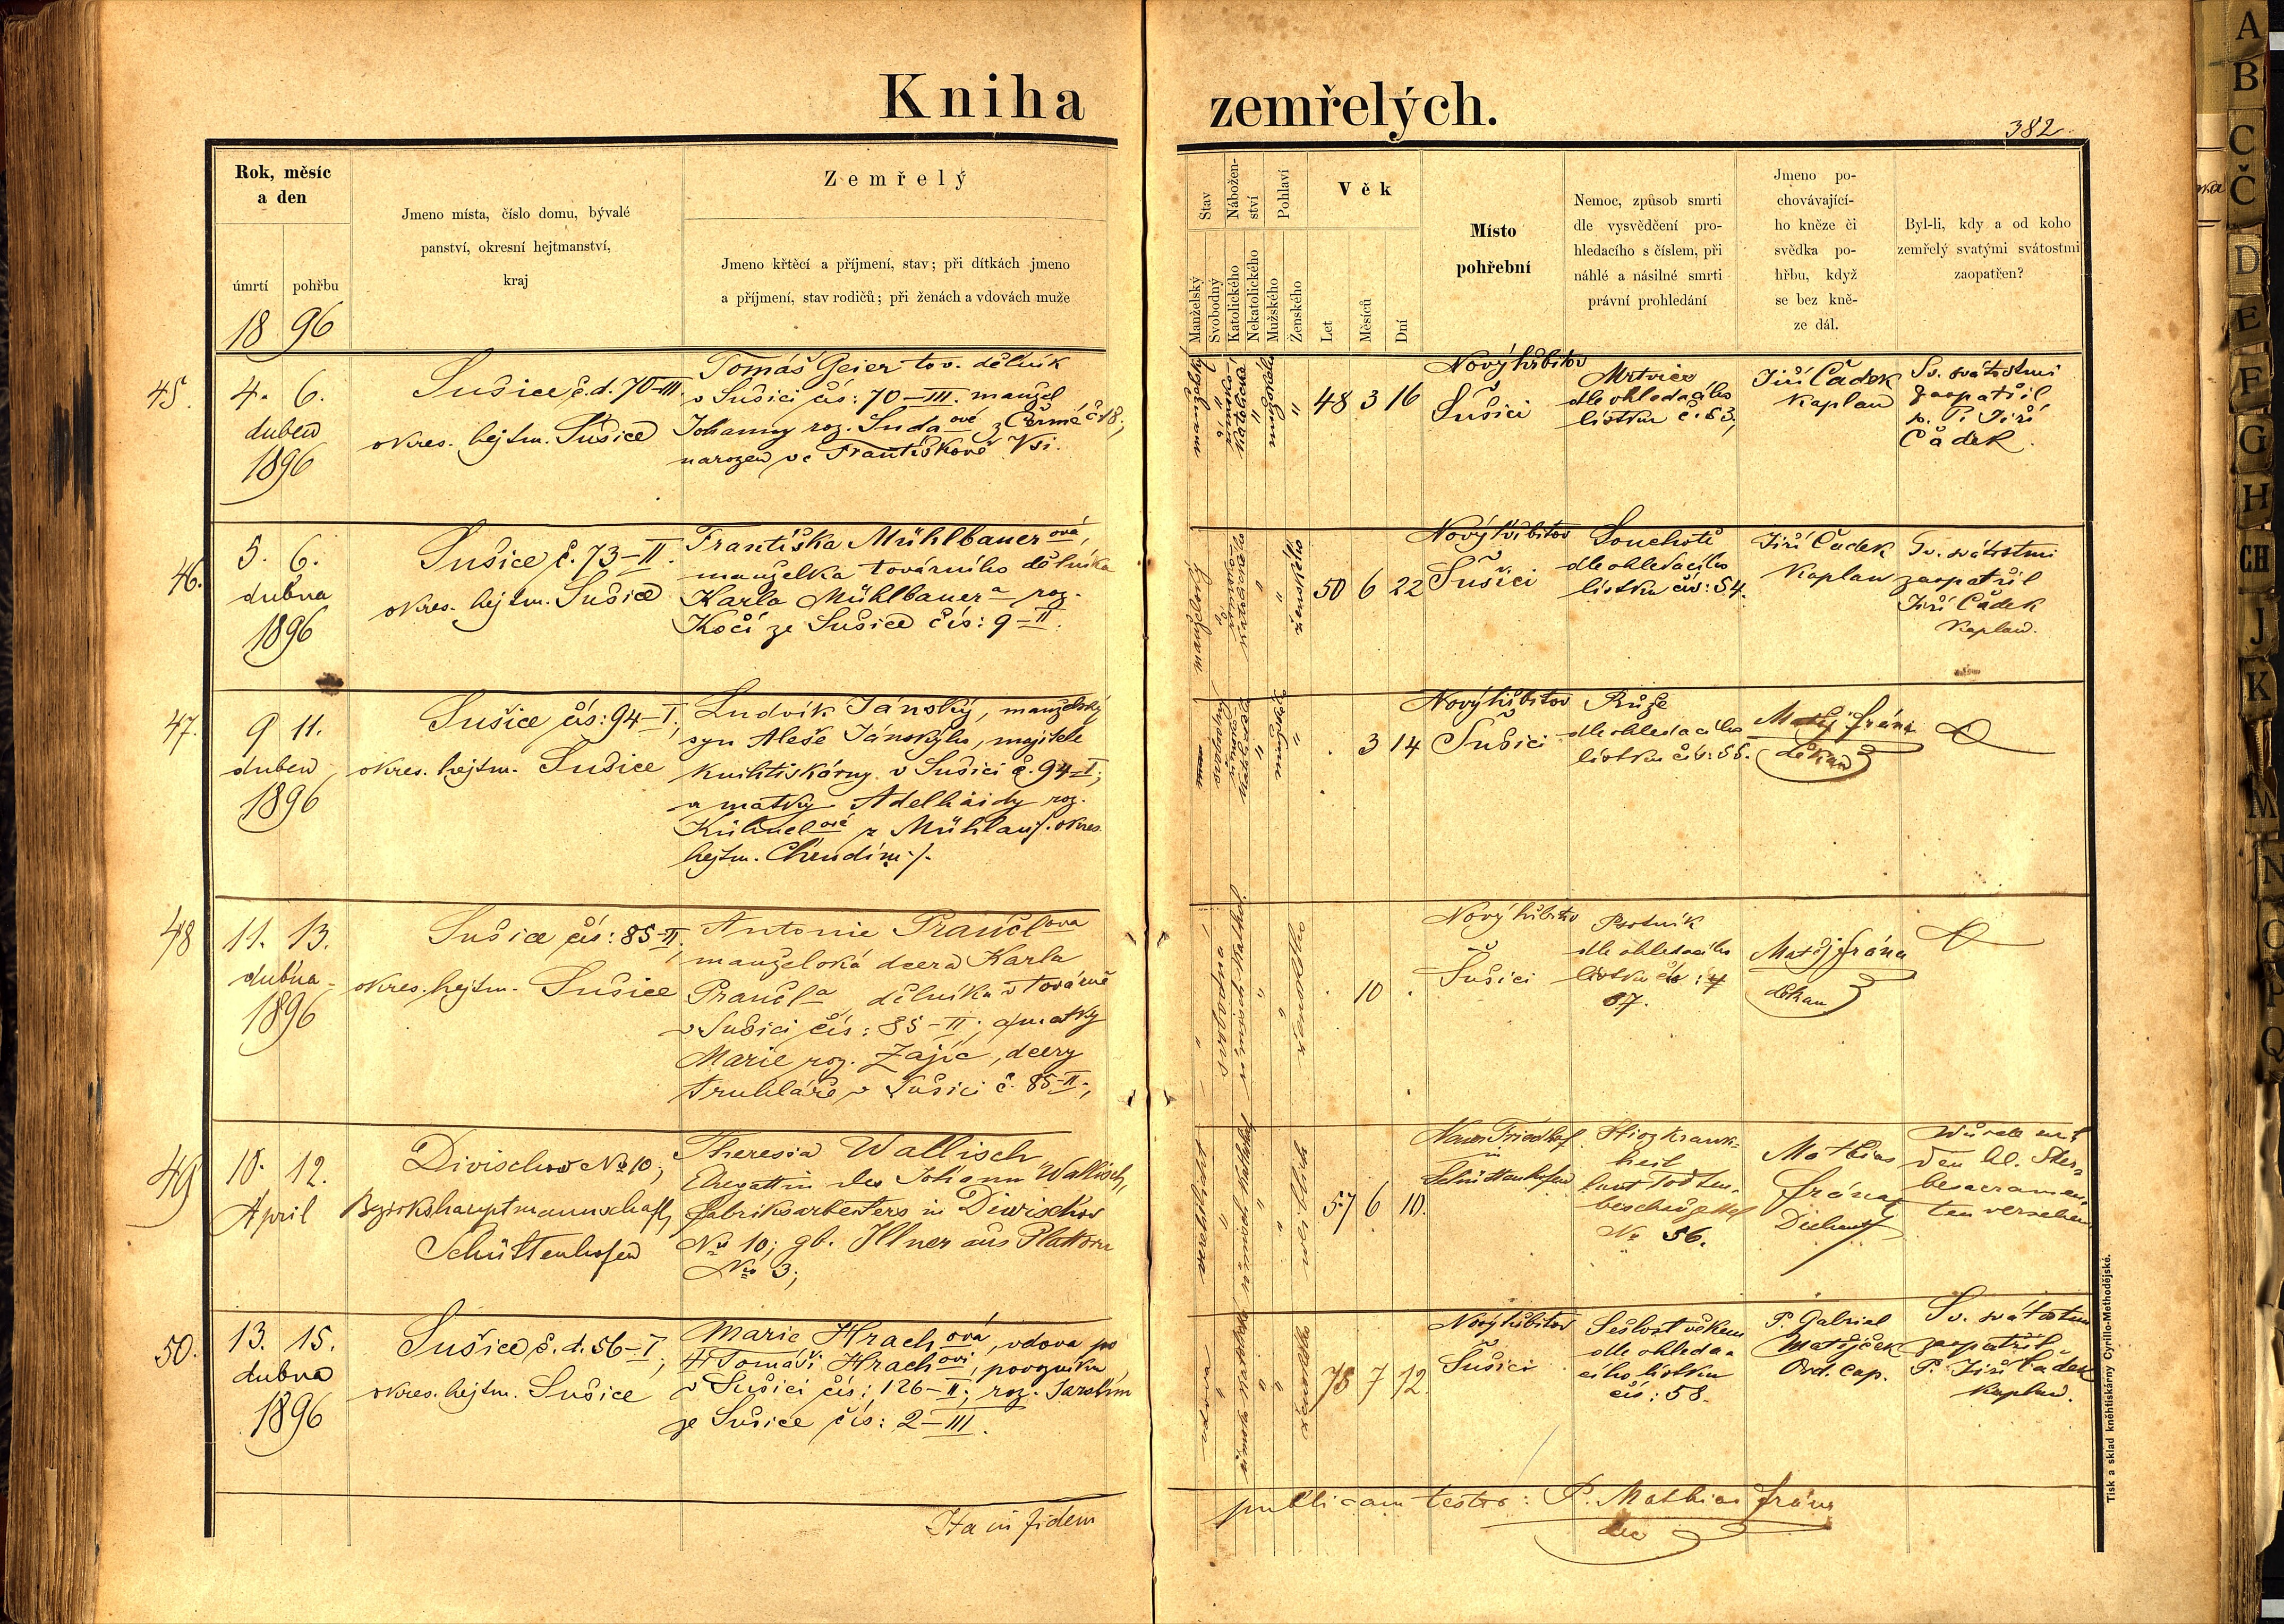 Kniha zemřelých.
382
Rok, měsíc
a den
úmrtí
pohřbu
18 96
Jmeno místa, číslo domu, bývalé
panství, okresní hejtmanství,
kraj
Zemřelý
Jmeno křtěcí a příjmení, stav; při dítkách jmeno
a příjmení, stav rodičů; při ženách a vdovách muže
Stav
Manželský
Svobodný
Nábožen-
ství
Katolického
Nekatolického
Pohlaví
Mužského
Ženského
Věk
Let
Měsíců
Dní
Místo
pohřební
Nemoc, způsob smrti
dle vysvědčení pro-
hledacího s číslem, při
náhlé a násilné smrti
právní prohledání
Jmeno po-
chovávající-
ho kněze či
svědka po-
hřbu, když
se bez kně-
ze dál.
Byl-li, kdy a od koho
zemřelý svatými svátostmi
zaopatřen?
45.
4. 6.
duben
1896
Sušice č.d. 70–III.
okres. hejtm. Sušice
Tomáš Geier tov. dělník
v Sušici čís: 70–III. manžel
Johanny roz. Sudaové z Čermé č. 18;
narozen ve Františkově Vsi.
manželský
"
katolické
"
mužského
"
48 3 16
Nový hřbitov
Sušici
Mrtvice
dle ohledacího
lístku č. 53,
Jiří Čadek
Kaplan
Sv. svátostmi
zaopatřil
p. P. Jiří
Čadek.
46.
5. 6.
dubna
1896
Sušice č. 73–II.
okres. hejtm. Sušice
Františka Mühlbauerová,
manželka továrního dělníka
Karla Mühlbauera roz.
Kočí ze Sušice čís: 9–II.
manželský
"
katolického
"
"
ženského
50 6 22
Nový hřbitov
Sušici
Souchotě
dle ohledacího
lístku čís: 54.
Jiří Čadek
Kaplan
Sv. svátostmi
zaopatřil
Jiří Čadek
Kaplan.
47.
9 11.
duben
1896
Sušice čís: 94–I;
okres. hejtm. Sušice
Ludvík Jánský, manželský
syn Aleše Jánského, majitele
knihtiskárny v Sušici č. 94–I;
a matky Adelhaidy roz.
Kühnelové z Mühlau /. okres.
hejtm. Chrudim ./.
"
"
. 3 14
Nový hřbitov
Sušici
Růže
dle ohledacího
lístku čís: 55.
Matěj Frána
děkan
48
11. 13.
dubna
1896
Sušice čís: 85–II.
okres. hejtm. Sušice
Antonie Prančlova
manželská dcera Karla
Prančla, dělníka v továrně
v Sušici čís: 85–II; a matky
Marie roz. Zajíc, dcery
truhláře v Sušici č. 85–II;
"
svobodná
římsko kathol.
"
"
ženského
. 10 .
Nový hřbitov
Sušici
Psotník
dle ohledacího
lístku čís:
57.
Matěj Frána
děkan
49
10. 12.
April
Divischov No 10;
Bezirkshauptmannschaft
Schüttenhofen
Theresia Wallisch
Ehegattin des Johann Wallisch,
Fabriksarbeiters in Divischov
No 10; gb. Illner aus Plattorn
No 3;
verehelicht
"
römisch katholisch
"
"
weiblich
57 6 10.
Neuer Friedhof
in
Schüttenhofen
Krank-
heit
laut Todten-
beschau
No 56.
Mathias
Frána
Dechant
Wurde mit
den hl. Ster-
besacramen-
ten versehen
50.
13. 15.
dubna
1896
Sušice č. d. 56–I;
okres. hejtm. Sušice
Marie Hrachová, vdova po
Tomáši Hrachovi, povozníku
v Sušici čís; 126–II; roz. Jarolím
ze Sušice čís: 2–III.
vdova
"
římsko katolická
"
"
ženského
78 7 12.
Nový hřbitov
Sušici
Sešlost věkem
dle ohleda-
cího lístku
čís: 58.
P. Gabriel
Matějček
Ord. Cap.
Sv. svátostmi
zaopatřil
P. Jiří Čadek
Kaplan.
Ita in fidem publicam testor: P. Mathias Frána
dec
Tisk a sklad knĕhtiskárny Cyrillo-Methodějské.
A
B
C
Č
D
E
F
G
H
CH
J
K
M
N
O
P
Q